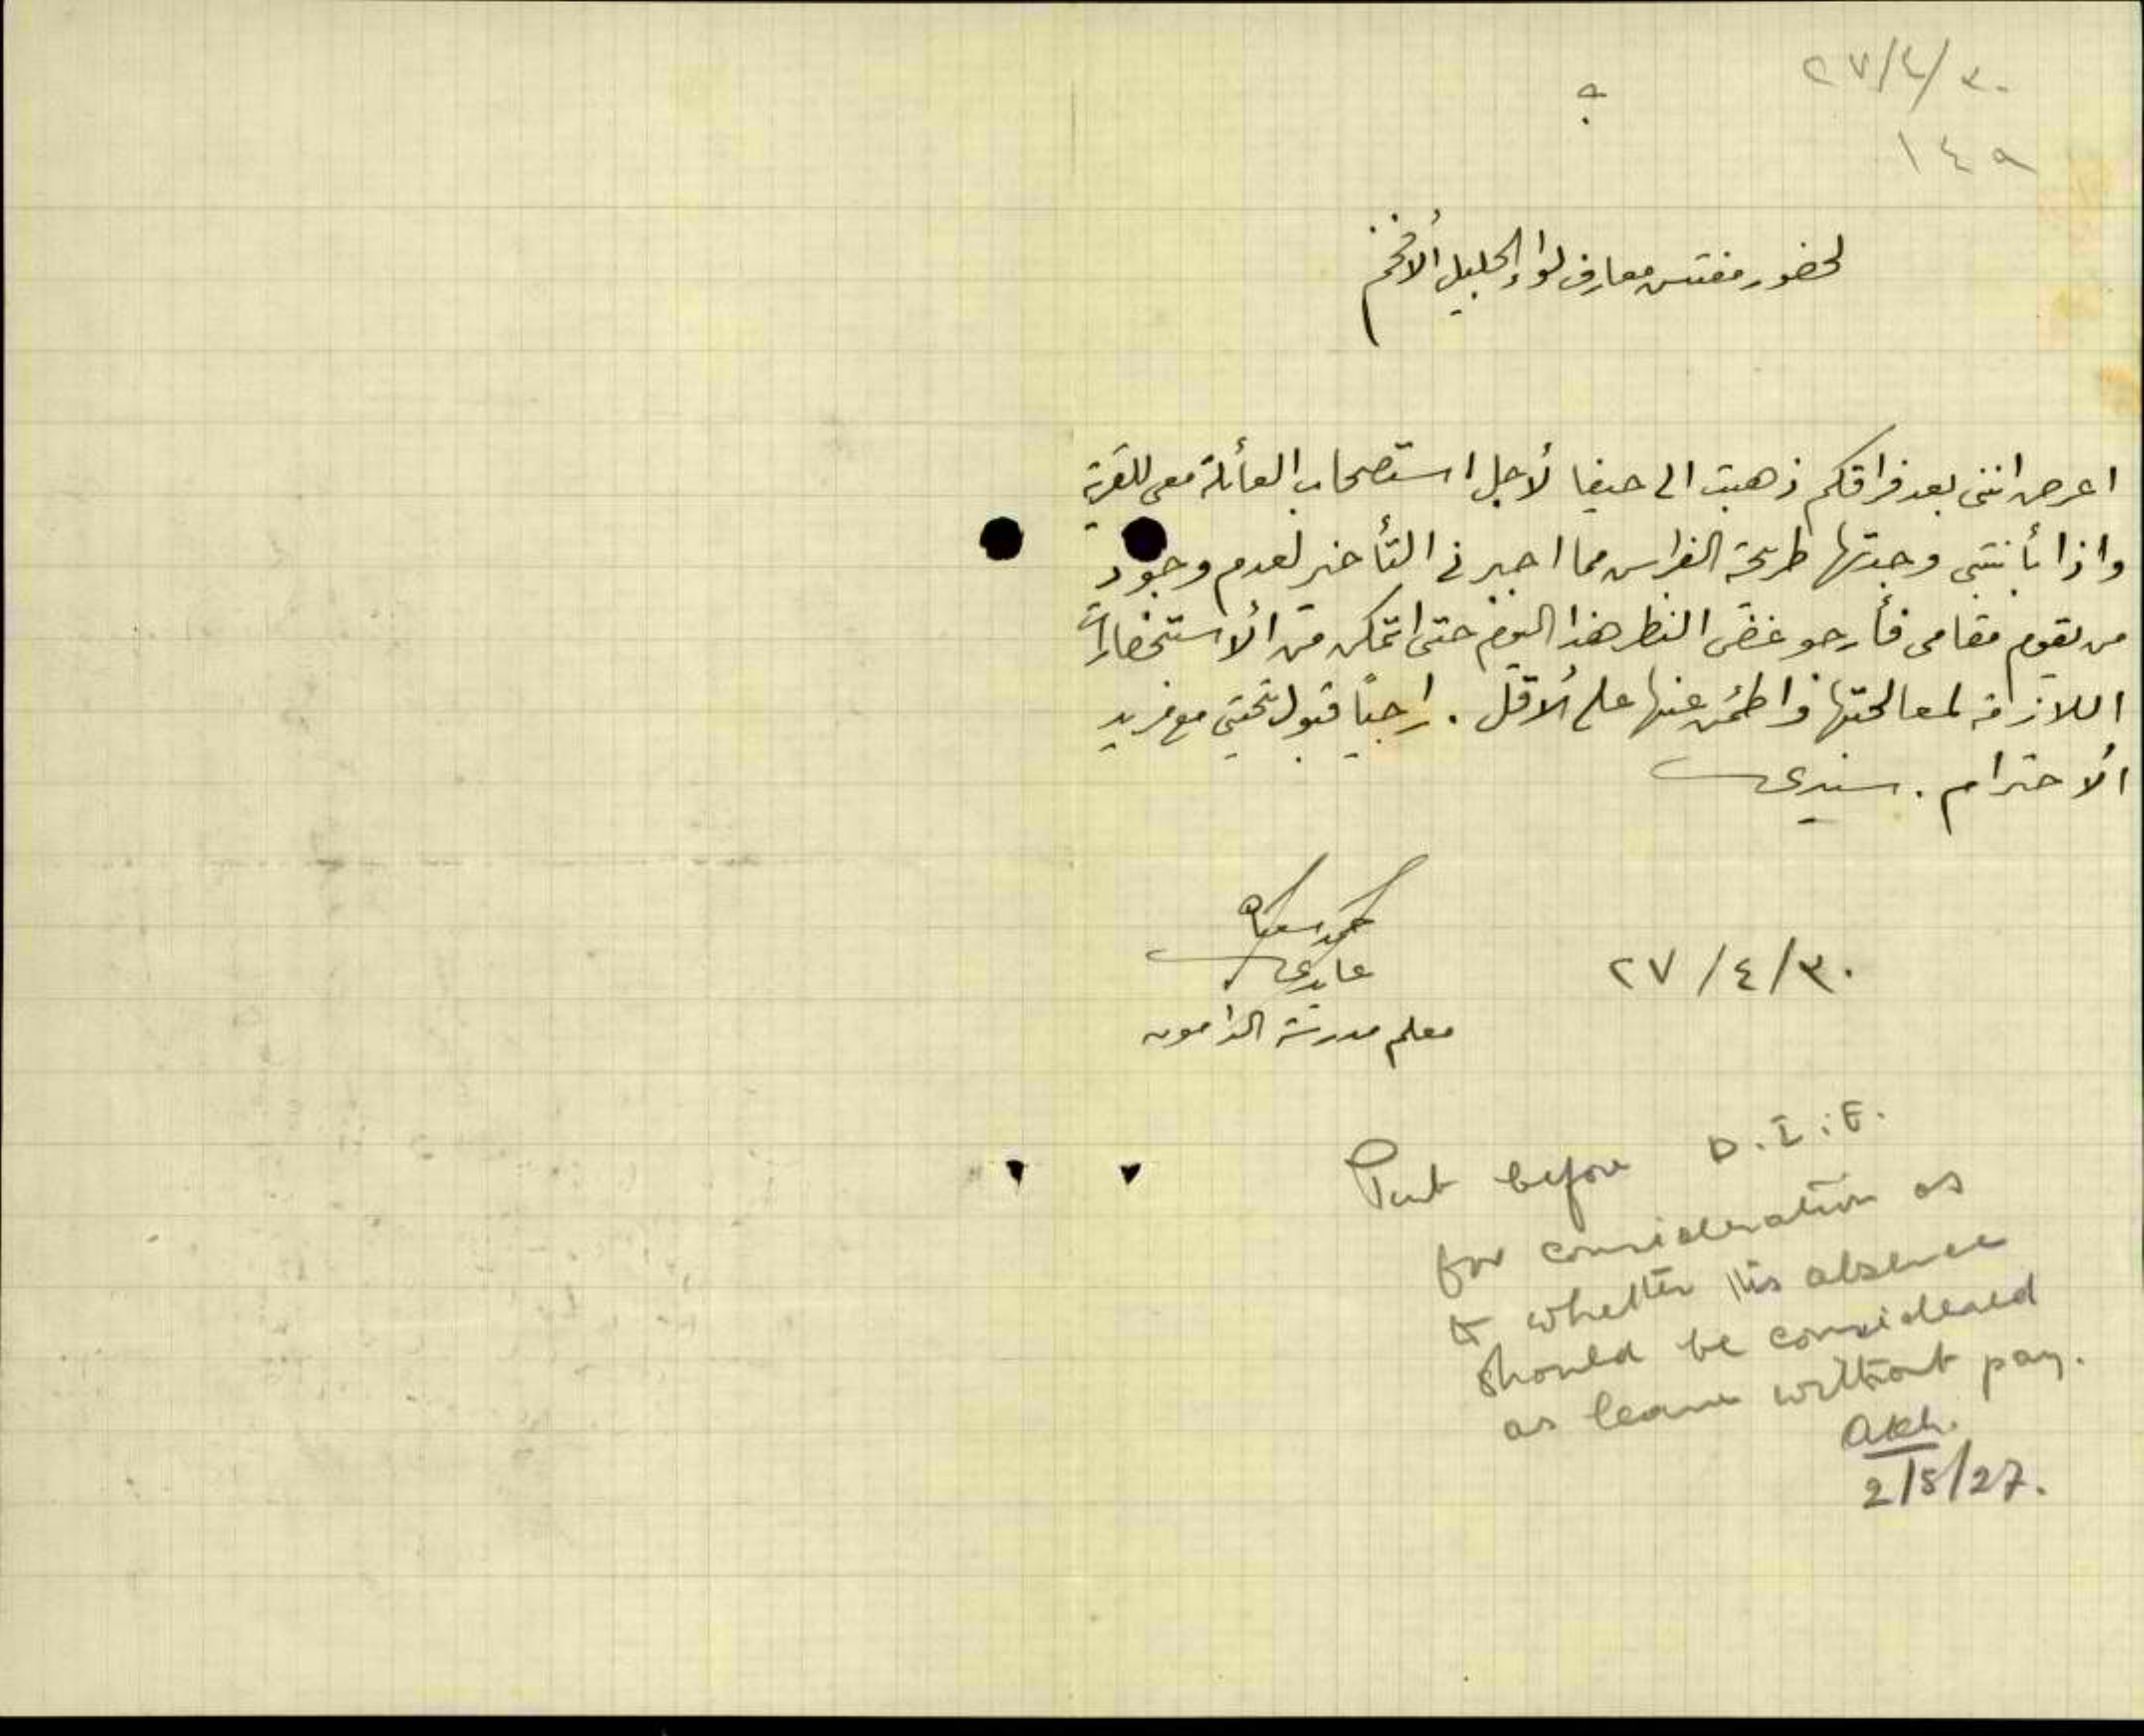 ٢٧/٤/٣٠
١٤٩
لحضور مفتش معارف لواء الجليل الأفخم
اعرض انني بعد فراقكم ذهبت الى حيفا لأجل استصحاب العائلة معي للقرية
واذا بأبنتي وجدتها طريحة الفراش مما اجبرني التأخير لعدم وجود
من يقوم مقامي فأرجو غض النظر هذا اليوم حتى اتمكن من الأستحضارات
اللازمة لمعالجتها واطمئن عنها على الأقل . راجياً قبول تحيتي مع مزيد
الأحترام . سيدي
٢٧/٤/٣٠
محمد
عابدي
معلم مدرسة الدامون
Put before D.I.E.
for consideration as
to whether his absence
should be considered
as leave without pay.
2/5/27.